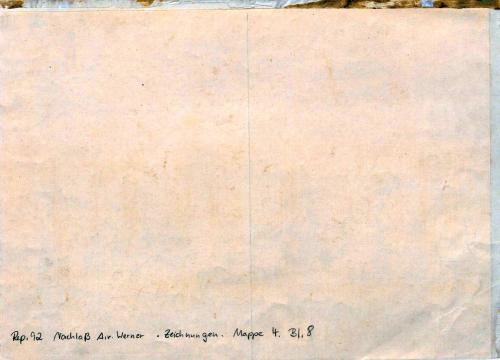 Rep. 92 Nachlaß A.v. Werner . Zeichnungen. Mappe 4. Bl. 8